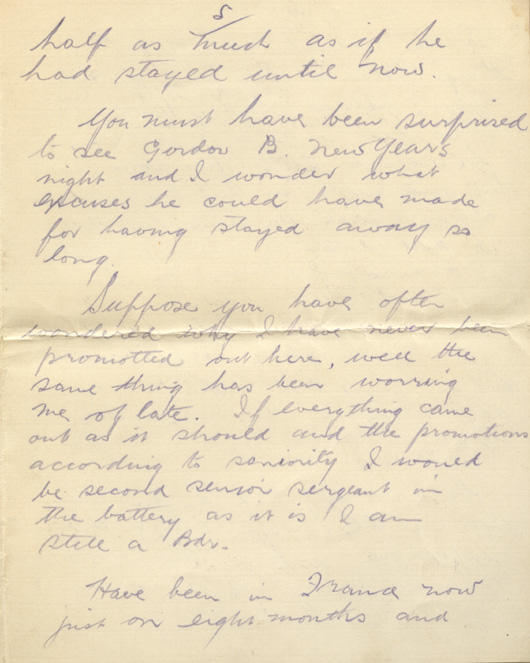 5
half as much as if he
had stayed until now.
You must have been surprized
to see Gordon B. New Years
night and I wonder what
excuses he could have made
for having stayed away so
long.
Suppose you have often
wondered why I have never been
promotted out here, well the
same thing has been worring
me of late. If everything came
out as it should and the promotions
according to soniority I would
be second senior sergeant in
the battery as it is I am
still a Bdr.
Have been in France now
just on eight months and